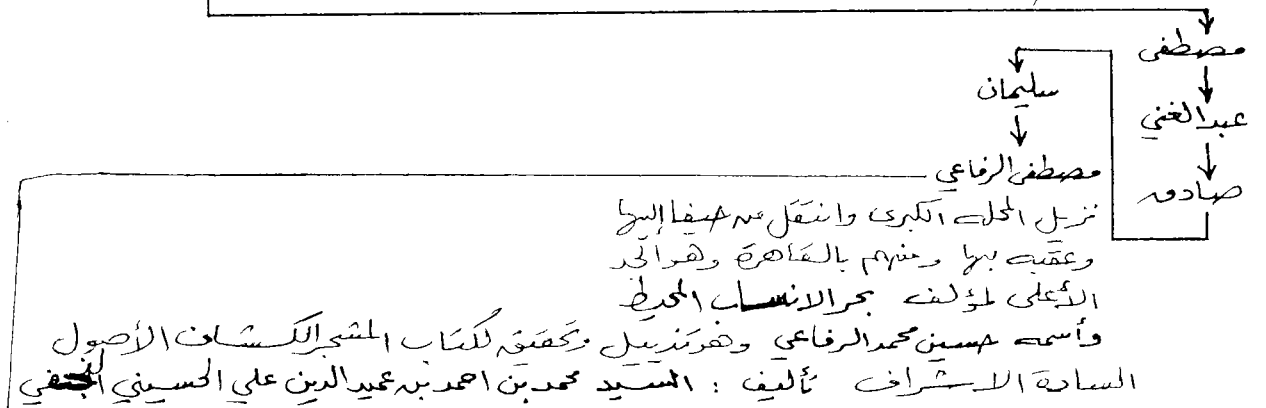 مصطفى
سليمان
عبدالغني
مصطفى الرفاعي
صادق
نزيل المحله الكبرى وانتقل من حيفا إليها
وعقبه بها ومنهم بالقاهرة وهو الجد
الأعلى لمؤلف بحر الانساب المحيط
وأسمه حسين محمد الرفاعي وهو تذييل وتحقيق لكتاب المشجر الكشاف الأصول
السادة الاشراف تأليف : السيد محمد بن احمد بن عميد الدين علي الحسيني النجفي